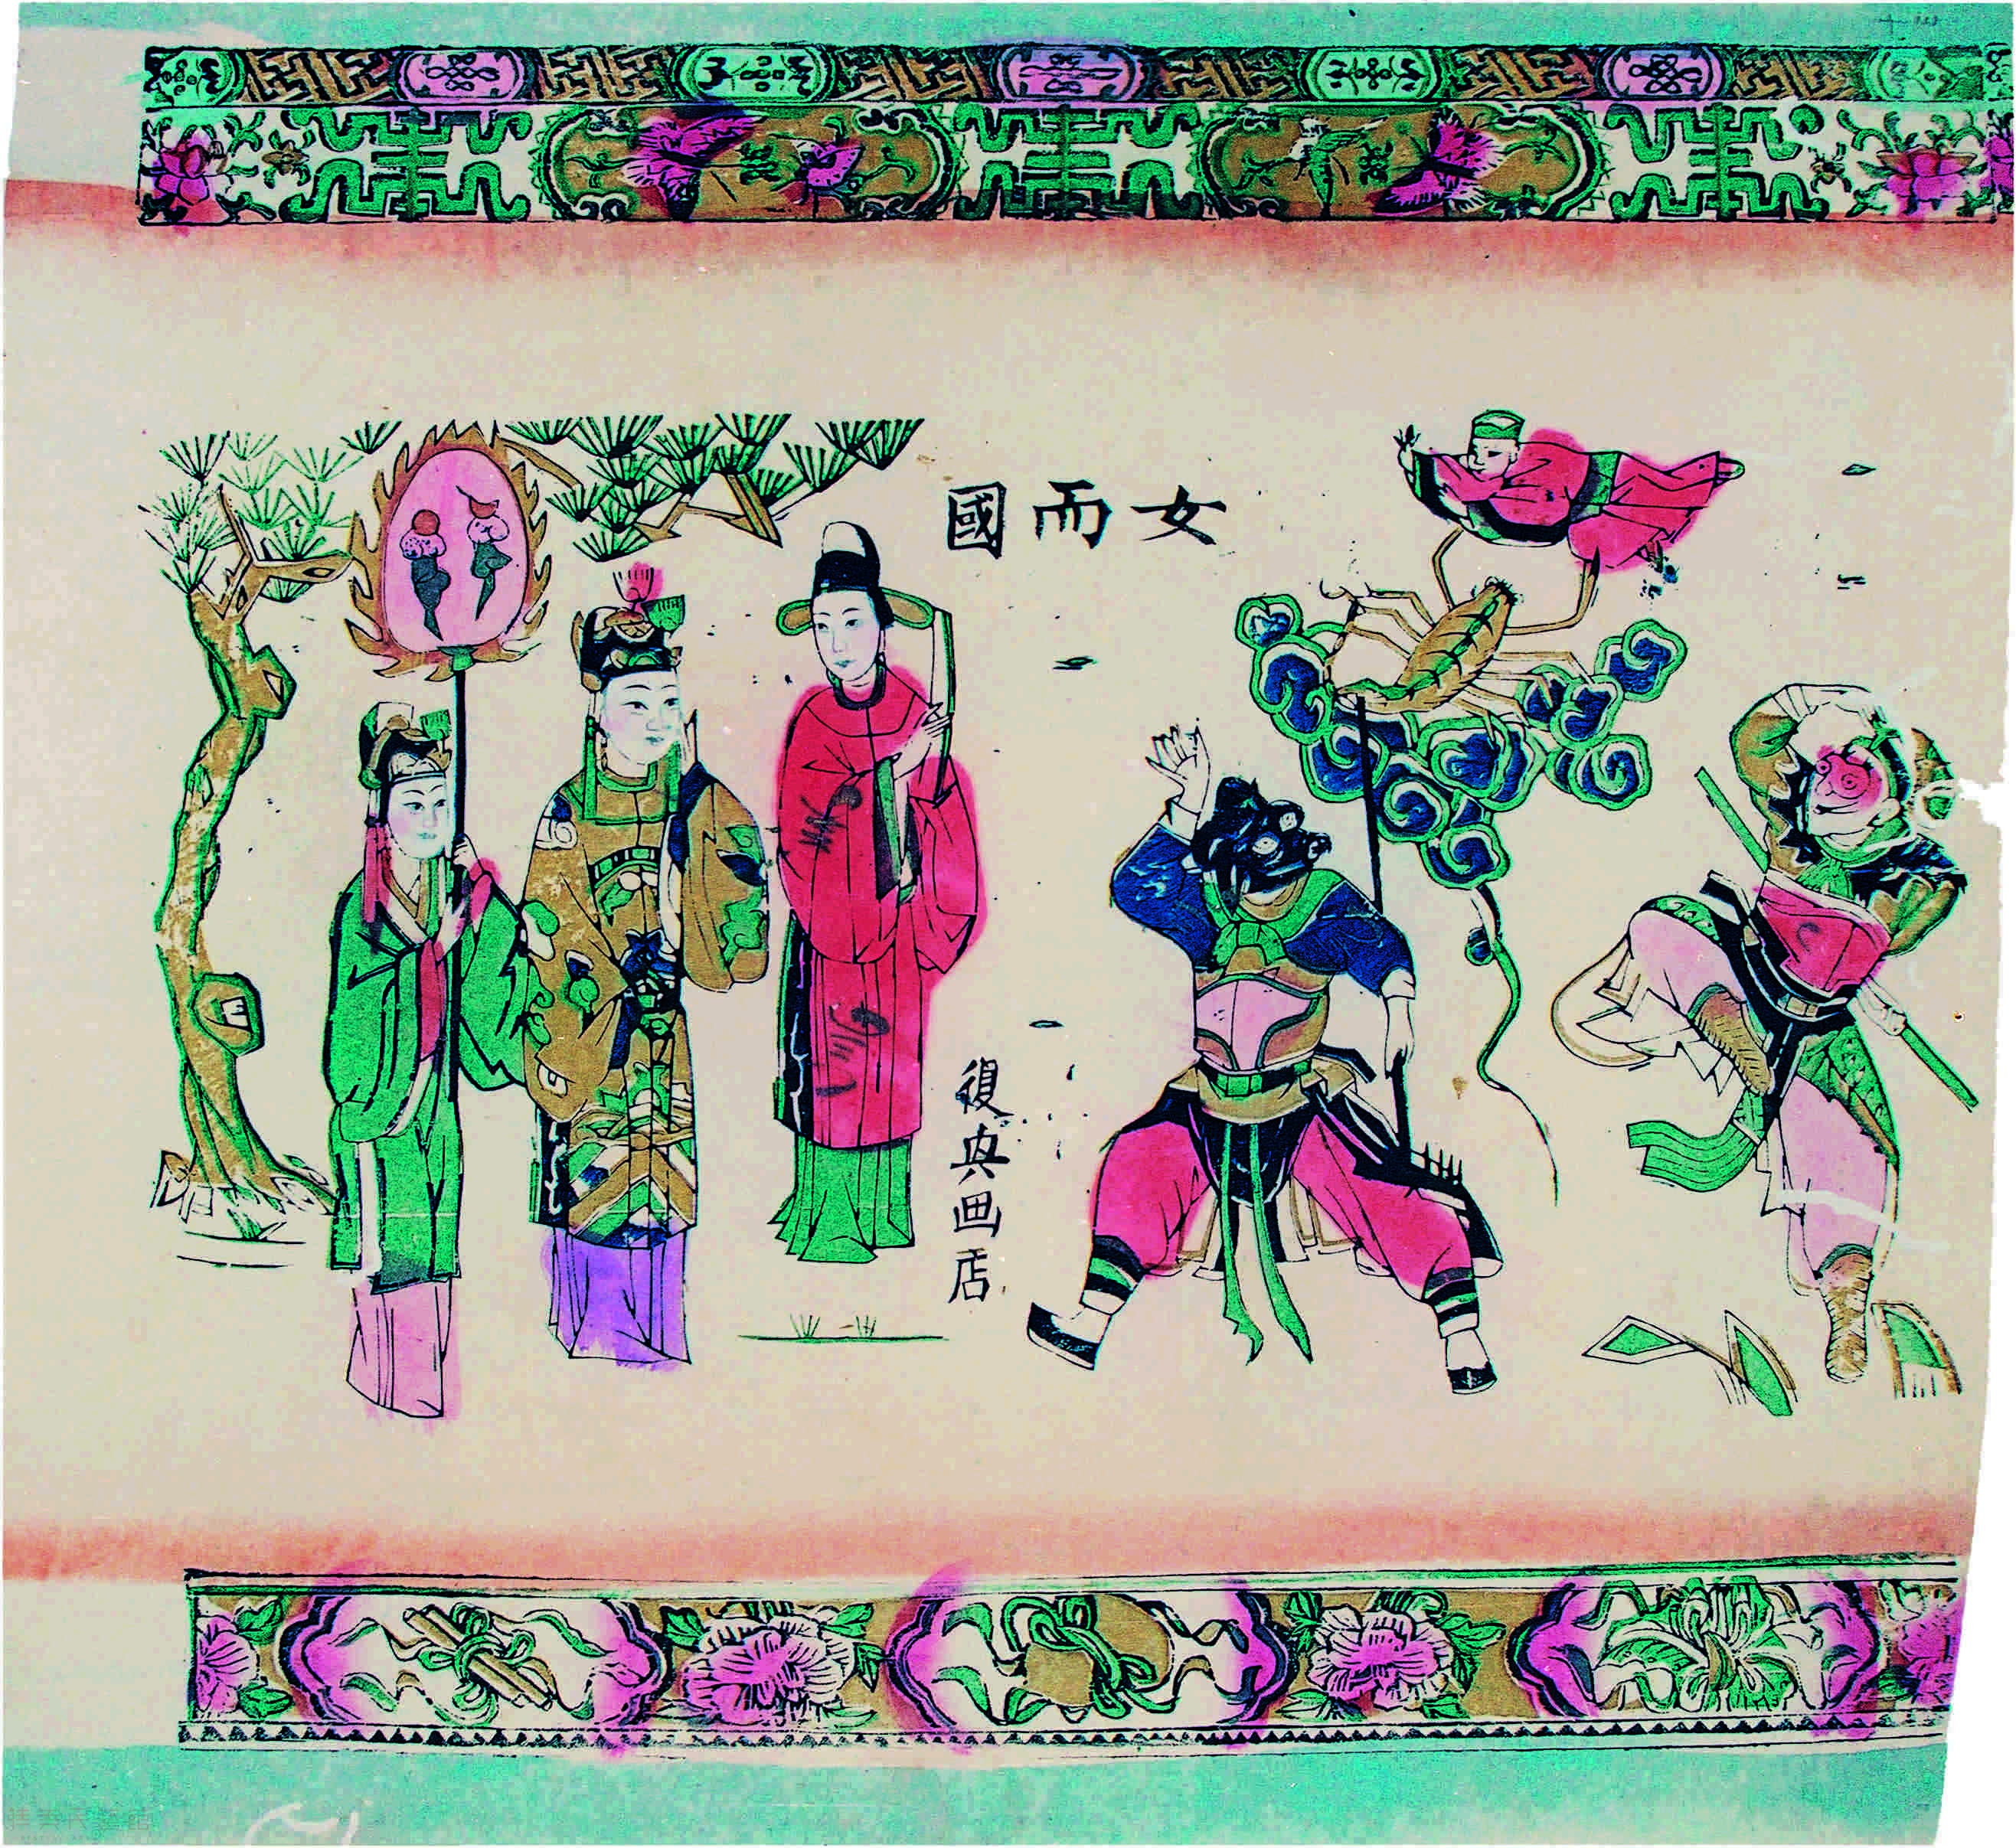 女而國
復興画店